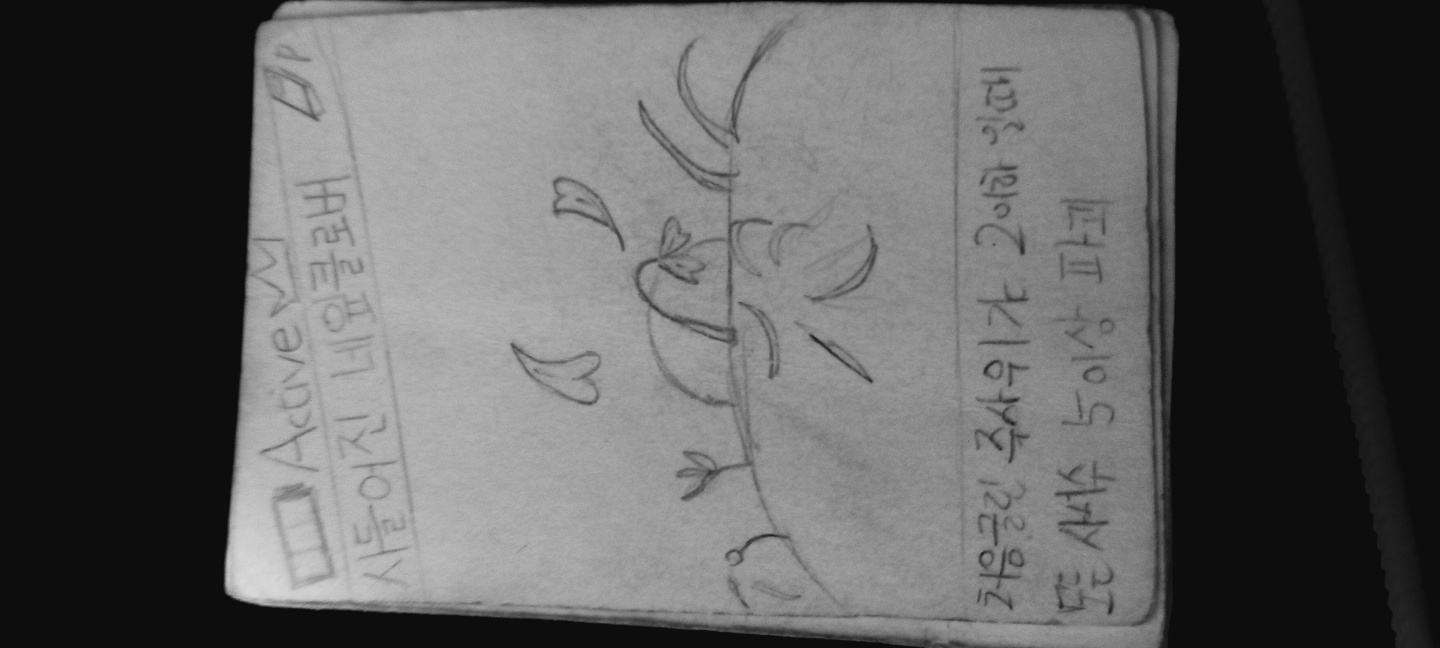 Active
시들어진 네잎클로버
처음굴린 주사위가 2이하 일때
또는 사선수 5이상 파괴